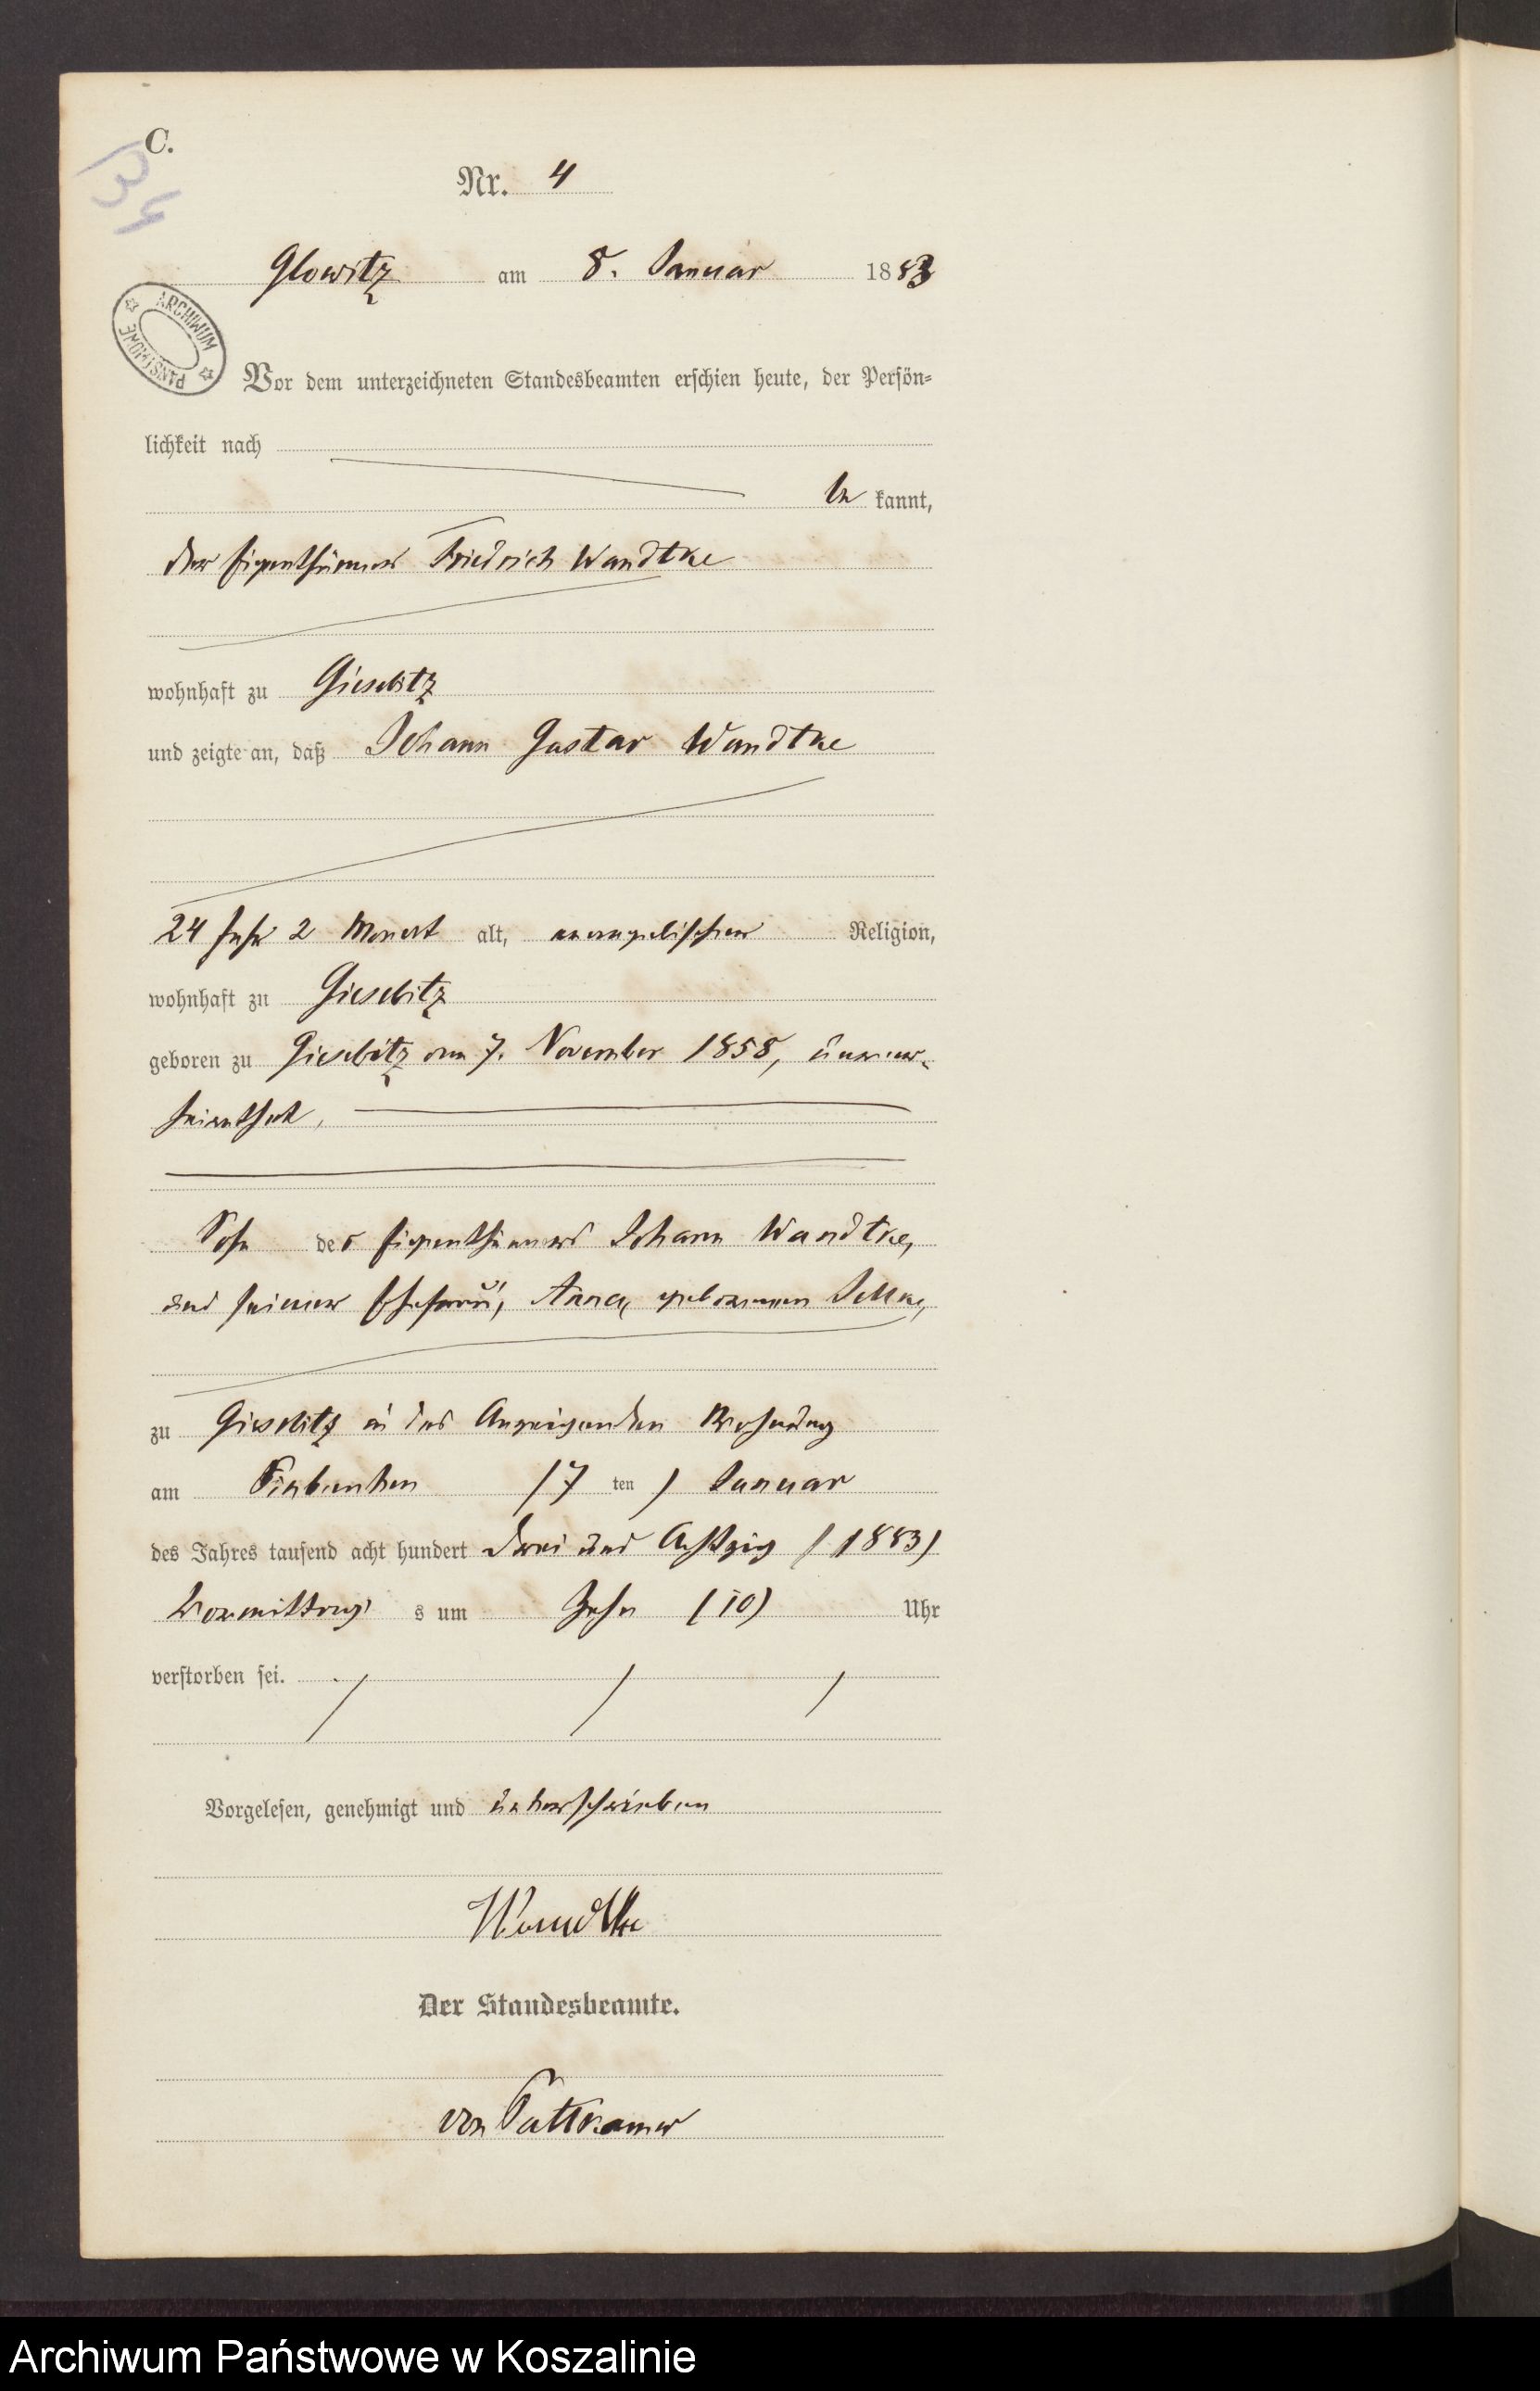 C.
134
Nr. 4
Glowitz am 8. Januar 1883
ARCHIWUM PAŃSTWOWE
Vor dem unterzeichneten Standesbeamten erschien heute, der Persön-
lichkeit nach
be kannt,
der Eigenthümer Friedrich Wandtke
wohnhaft zu Giesebitz
und zeigte an, daß Johann Gustav Wandtke
24 Jahr 2 Monat alt, evangelischer Religion,
wohnhaft zu Giesebitz
geboren zu Giesebitz am 7. November 1858, unver-
heirathet,
Sohn des Eigenthümers Johann Wandtke,
und seiner Ehefrau, Anna, geborenen
zu Giesebitz in des Anzeigenden Wohnung
am Siebenten (7 ten ) Januar
des Jahres tausend acht hundert drei und Achtzig (1883)
Vormittag s um Zehn (10) Uhr
verstorben sei.
Vorgelesen, genehmigt und unterschrieben
Wandtke
Der Standesbeamte.
von Puttkamer
Archiwum Państwowe w Koszalinie